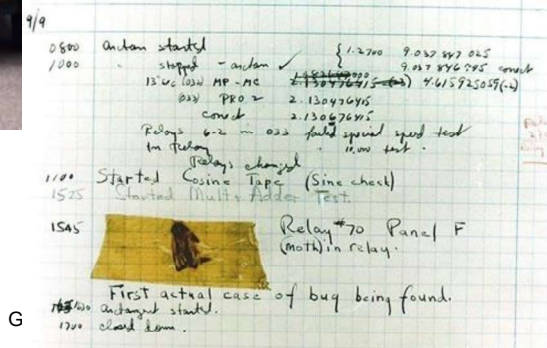 9/9
0800 antan started { 1.2700 9.037 847 025
1000 " stopped - antan ✓ 9.037 846 995 conect
13"uc (032) MP-MC 2.130476415 4.615925059(-2)
(033) PRO 2 2.130476415
conect 2.130676415
Relays 6-2 in 033 failed special speed test
in relay " 10,000 test.
Relays changed
1100 Started Cosine Tape (Sine check)
1525 Started Mult+Adder Test.
1545 Relay #70 Panel F
(moth) in relay.
First actual case of bug being found.
1630 antangent started.
1700 closed down.
G